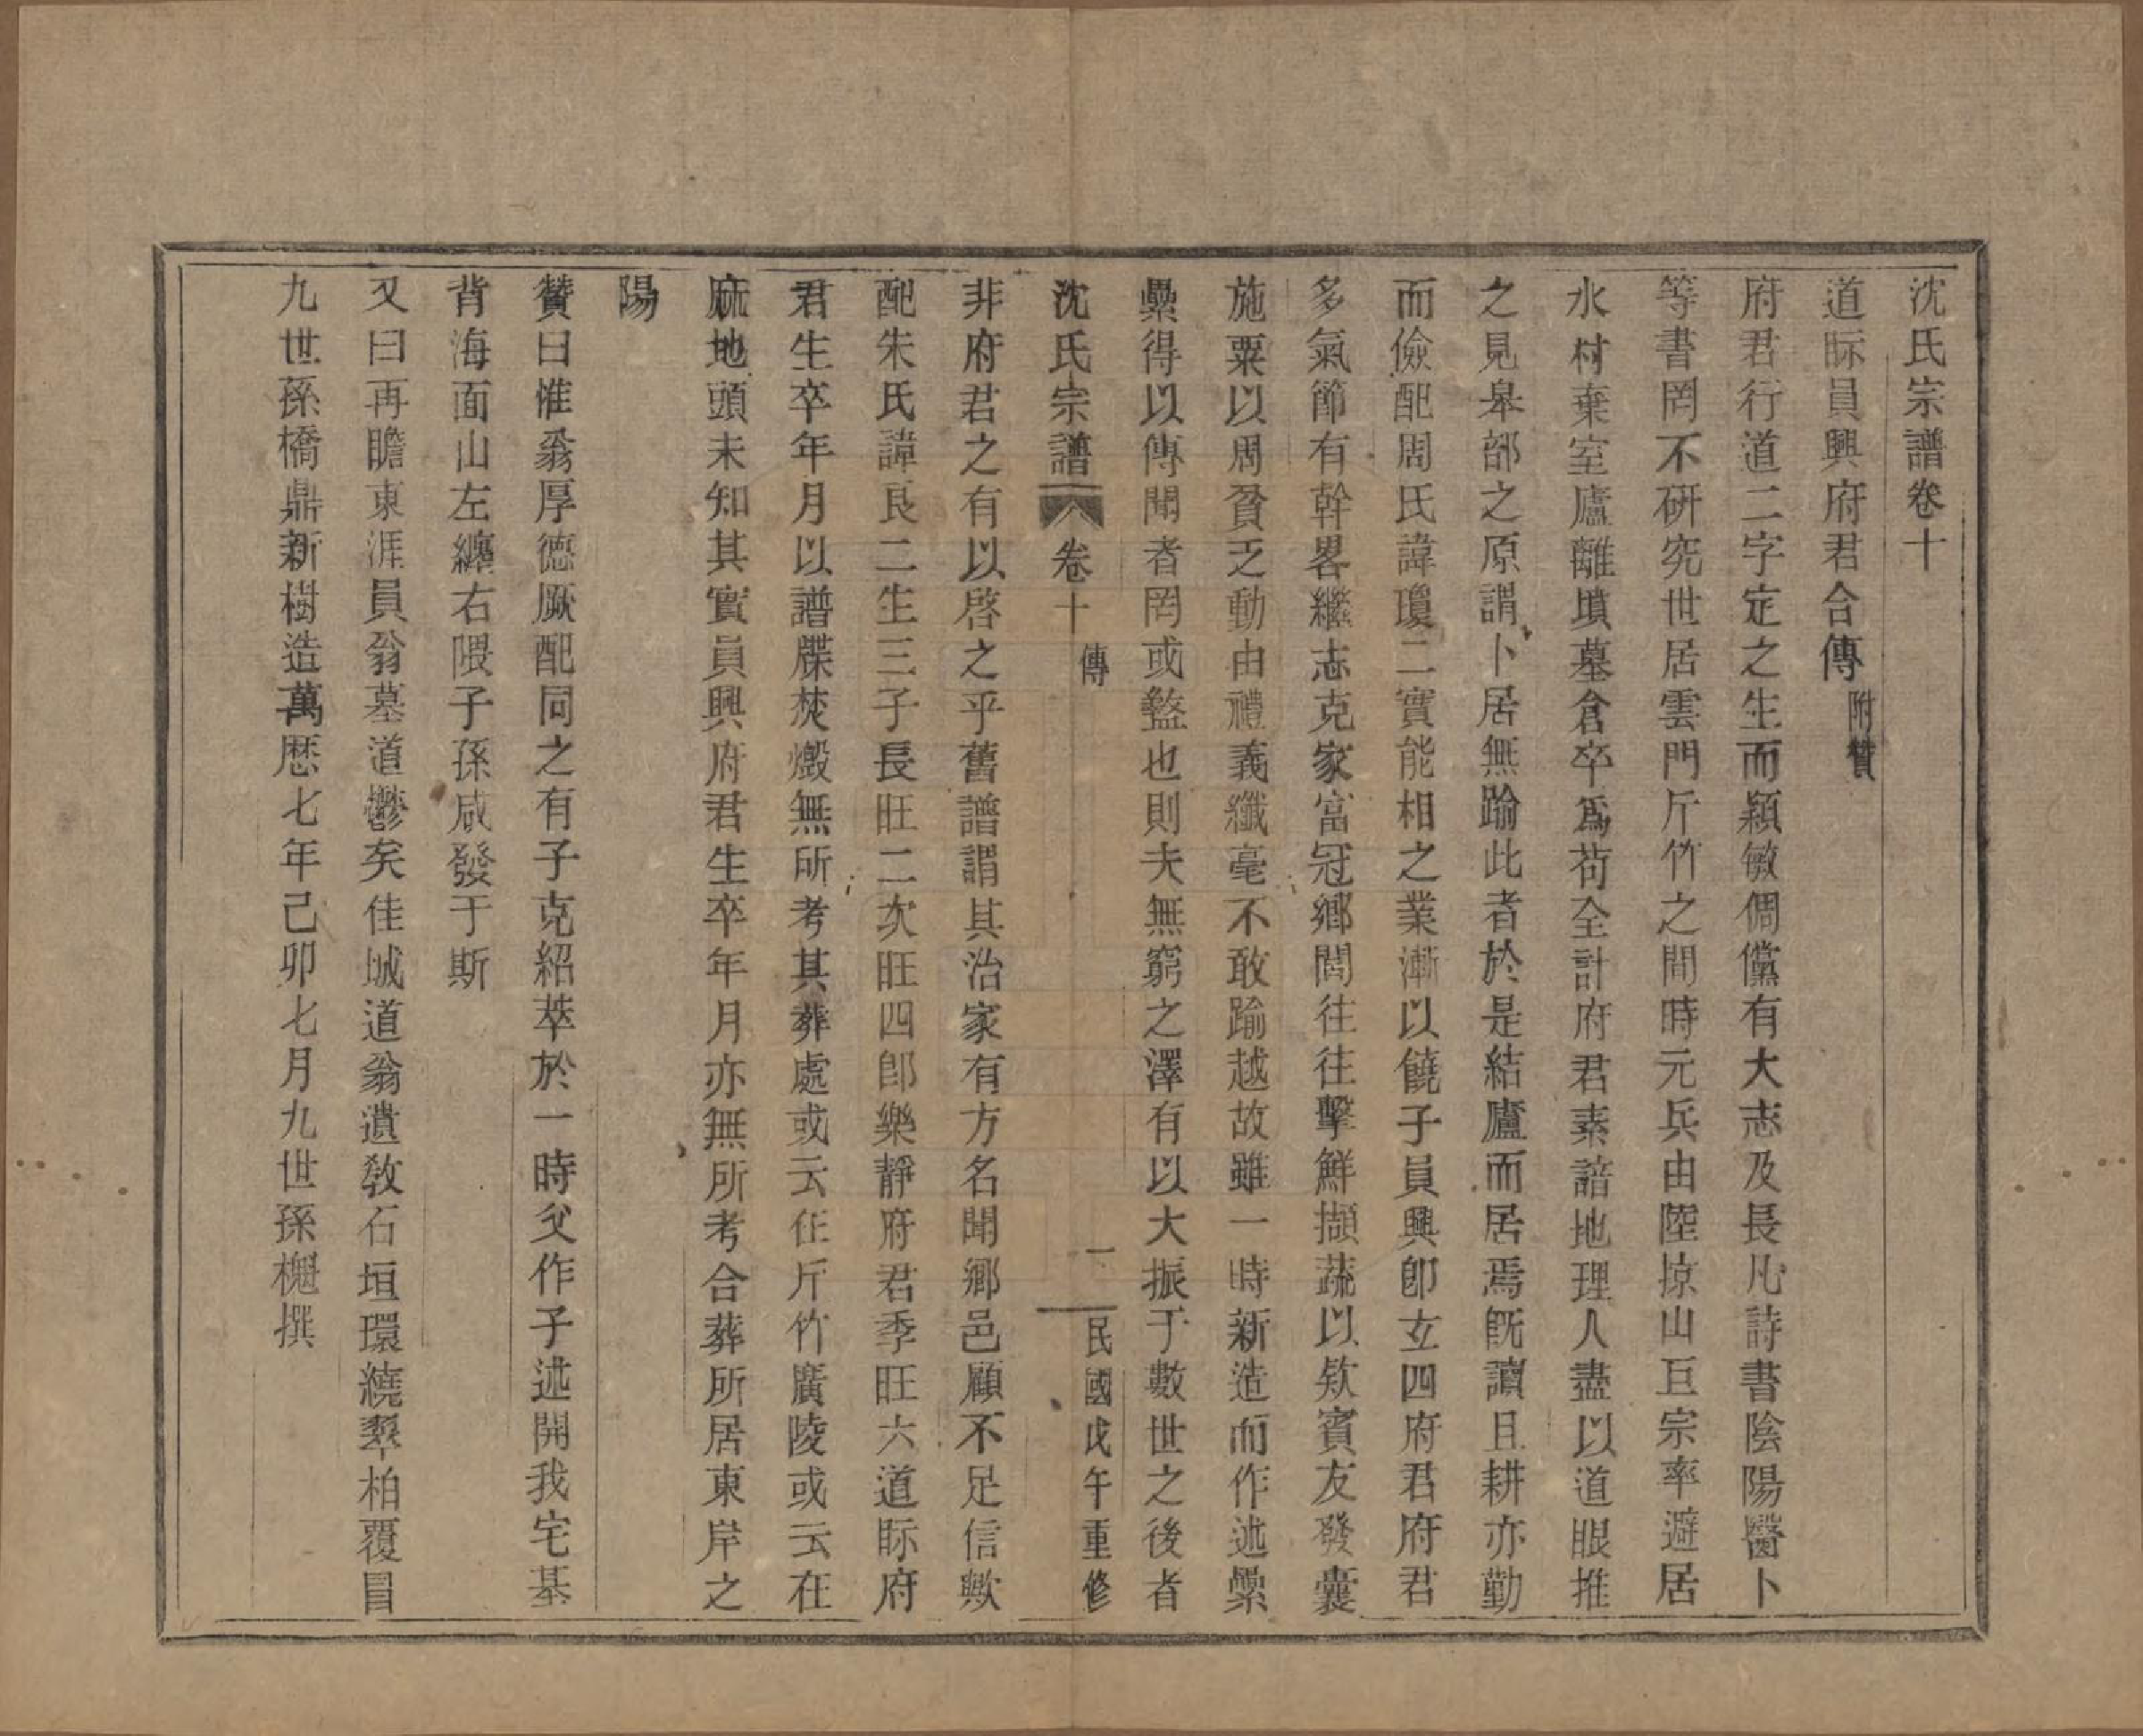 沈氏宗譜卷十
道眎員興府君合傳 附贊
府君行道二字定之生而穎敏倜儻有大志及長凡詩書陰陽醫卜
等書罔不研究世居雲門斤竹之間時元兵由陸掠山巨宗率避居
水村棄室廬離墳墓倉卒爲苟全計府君素諳地理人盡以道眼推
之見皋部之原謂卜居無踰此者於是結廬而居焉既讀且耕亦勤
而儉配周氏諱瓊二實能相之業漸以饒子員興卽玄四府君府君
多氣節有幹畧繼志克家富冠鄉閭往往擊鮮擷蔬以欵賓友發囊
施粟以周貧乏動由禮義纖毫不敢踰越故雖一時新造而作述纍
纍得以傳聞者罔或盭也則夫無窮之澤有以大振于數世之後者
沈氏宗譜 卷十 傳 一 民國戊午重修
非府君之有以啓之乎舊譜謂其治家有方名聞鄉邑顧不足信歟
配朱氏諱良二生三子長旺二次旺四卽樂靜府君季旺六道眎府
君生卒年月以譜牒焚燬無所考其葬處或云在斤竹廣陵或云在
麻地頭未知其實員興府君生卒年月亦無所考合葬所居東岸之
陽
贊曰惟翁厚德厥配同之有子克紹萃於一時父作子述開我宅基
背海面山左纏右隈子孫咸發于斯
又曰再瞻東涯員翁墓道鬱矣佳城道翁遺敎石垣環繞翠柏覆冒
九世孫橋鼎新樹造萬厯七年己卯七月九世孫槐撰